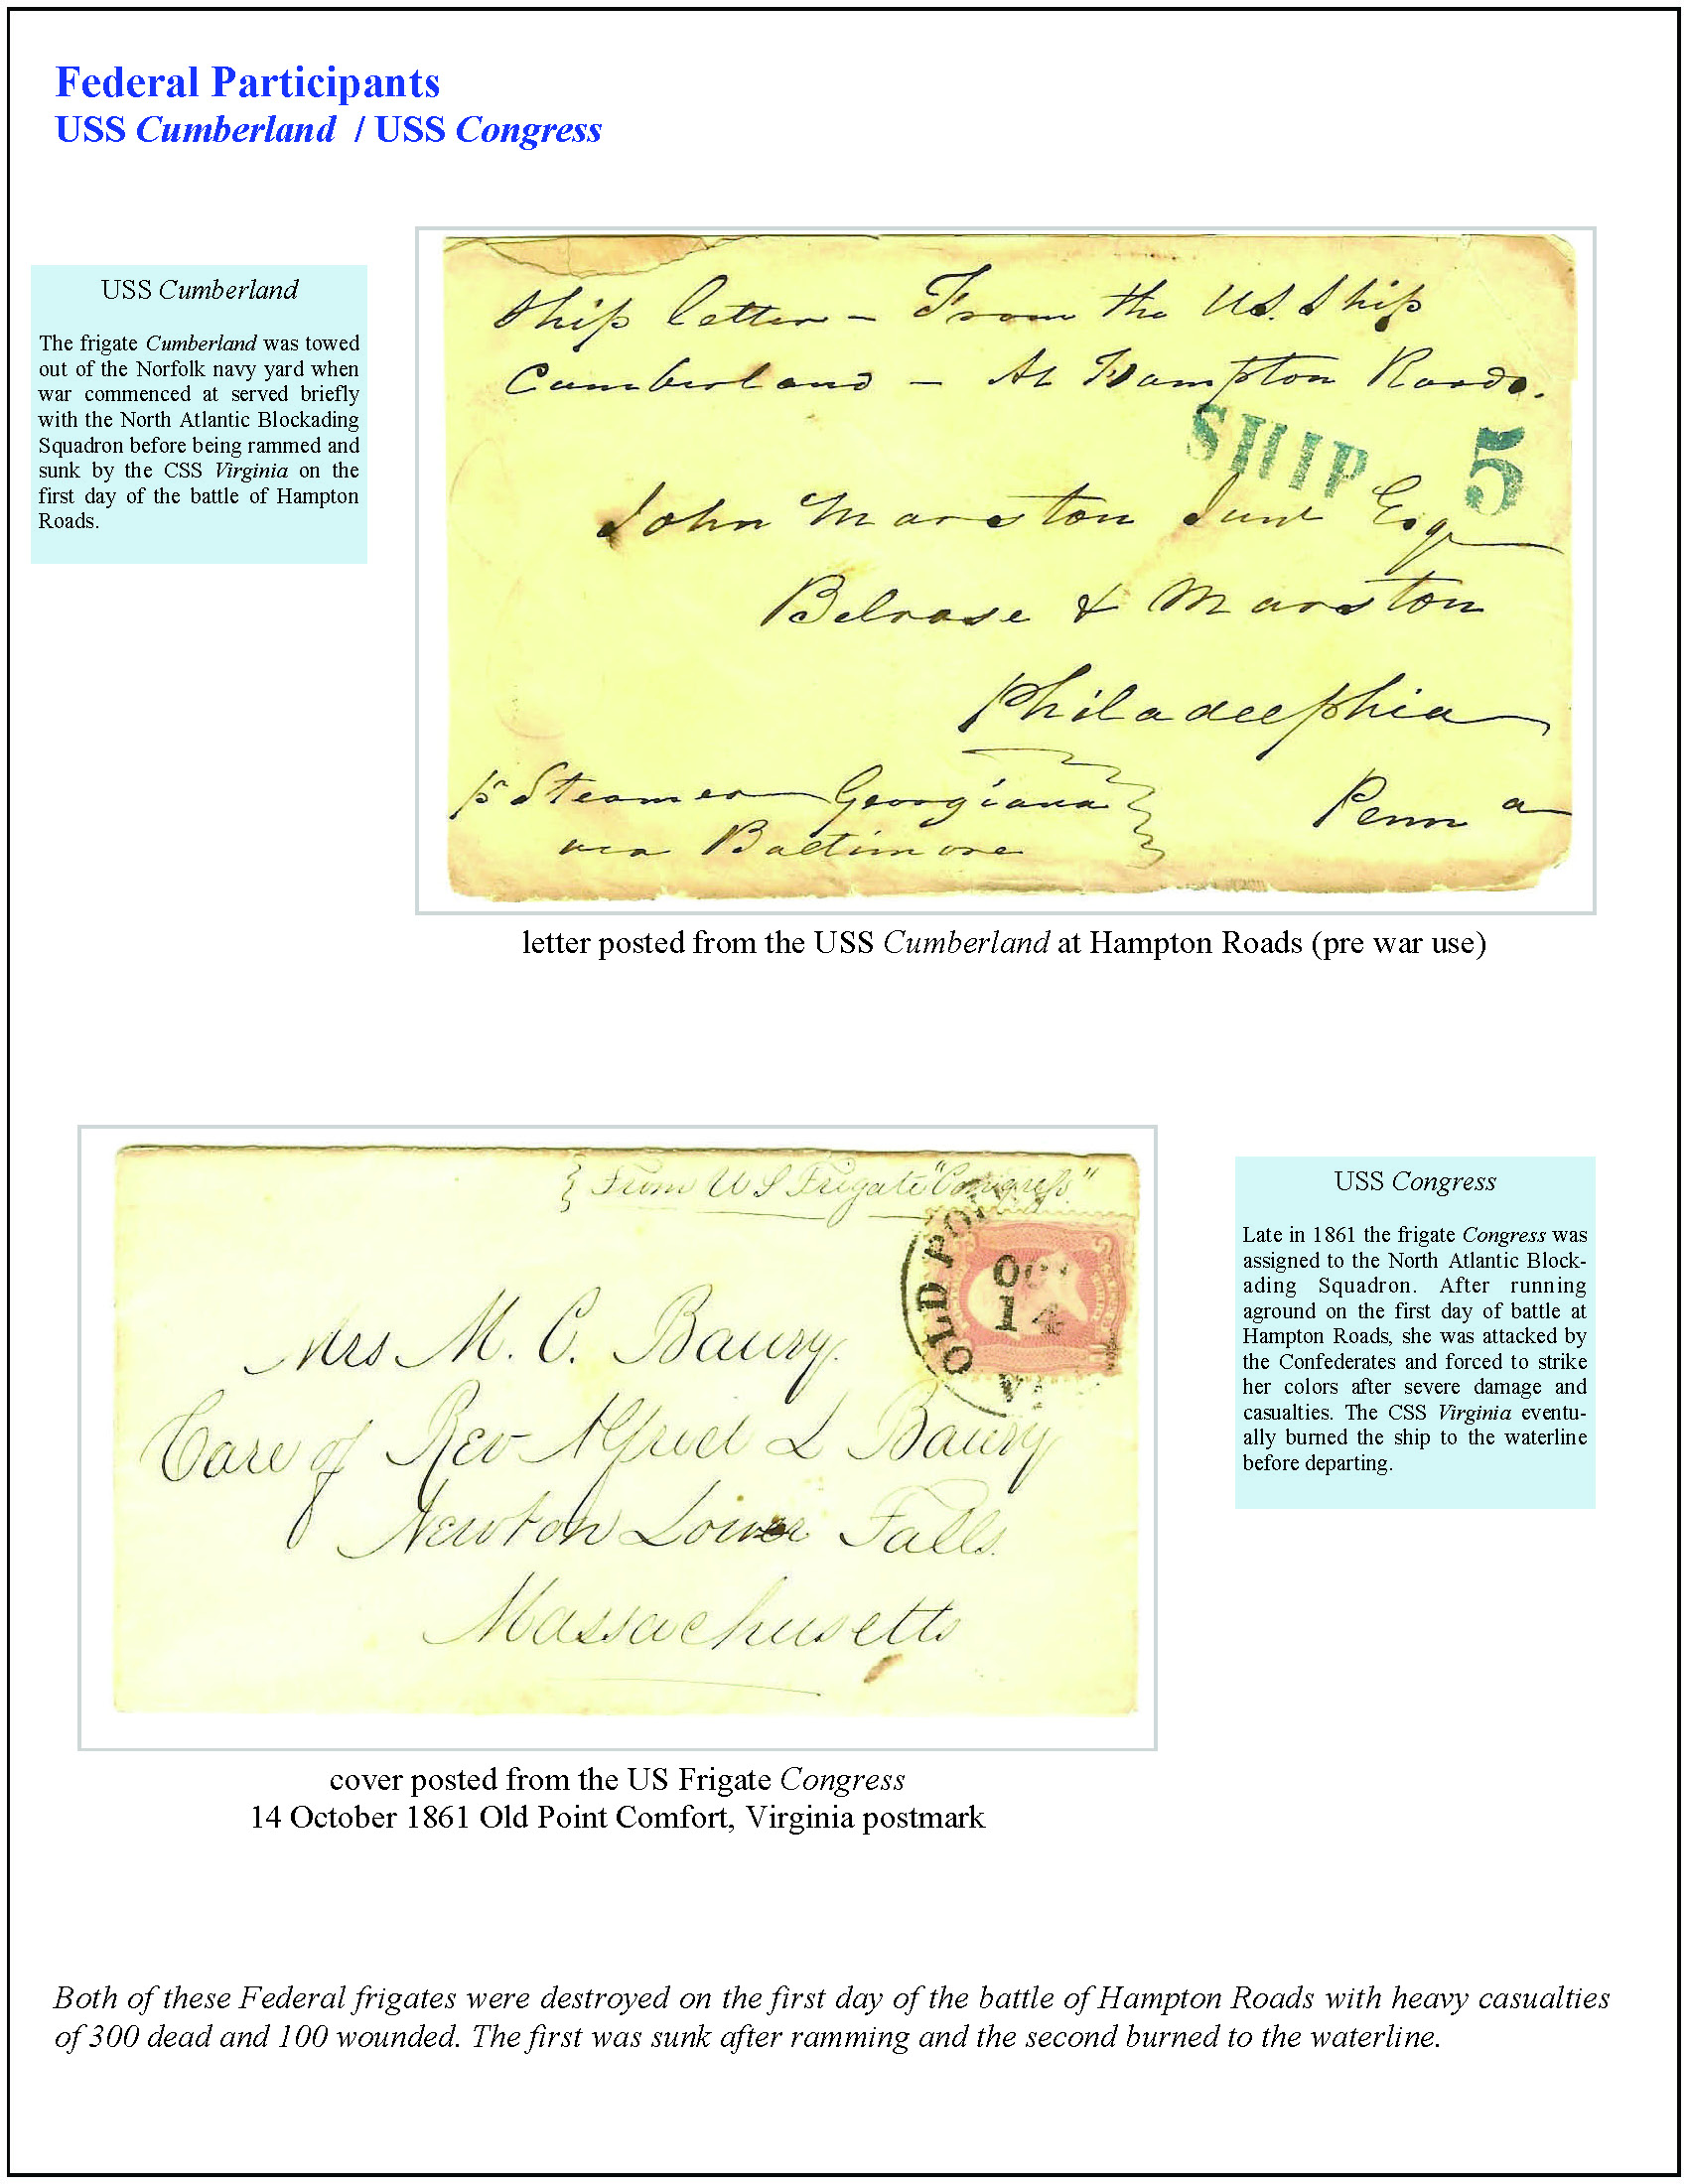 Federal Participants
USS Cumberland / USS Congress
USS Cumberland
The frigate Cumberland was towed
out of the Norfolk navy yard when
war commenced at served briefly
with the North Atlantic Blockading
Squadron before being rammed and
sunk by the CSS Virginia on the
first day of the battle of Hampton
Roads.
Ship letter – From the U.S. Ship
Cumberland – At Hampton Roads.
SHIP 5
John Marston Junr Esqr
Belrose & Marston
Philadelphia
Penna
pr Steamer Georgiana
via Baltimore
letter posted from the USS Cumberland at Hampton Roads (pre war use)
From U S Frigate "Congress"
OLD PO
OC
14
V
Mrs M. C. Baury.
Care of Rev Alfred L Baury
Newton Lower Falls.
Massachusetts
USS Congress
Late in 1861 the frigate Congress was
assigned to the North Atlantic Block-
ading Squadron. After running
aground on the first day of battle at
Hampton Roads, she was attacked by
the Confederates and forced to strike
her colors after severe damage and
casualties. The CSS Virginia eventu-
ally burned the ship to the waterline
before departing.
cover posted from the US Frigate Congress
14 October 1861 Old Point Comfort, Virginia postmark
Both of these Federal frigates were destroyed on the first day of the battle of Hampton Roads with heavy casualties
of 300 dead and 100 wounded. The first was sunk after ramming and the second burned to the waterline.